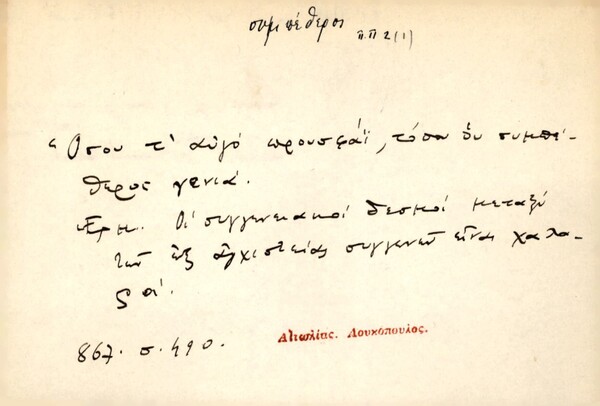 συμπέθερος π.π 2 (1)
"Οσου τ' αὐγό προυσφάϊ, τόσου ὁυ συμπέ-
θερος γενιά.
Ἑρμ. Οἱ συγγενειακοί δεσμοί μεταξύ
τῶν ἐξ ἀγχιστείας συγγενῶν εἶναι χαλα-
ροί.
867. σ. 490.
Αἰτωλίας. Λουκοπουλος.